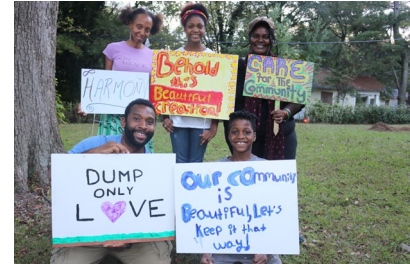 HARMON
Behold
this
Beautiful
creation!
CARE
for the
Community
DUMP
ONLY
LOVE
our community
is
Beautiful, Let's
Keep it that
way!